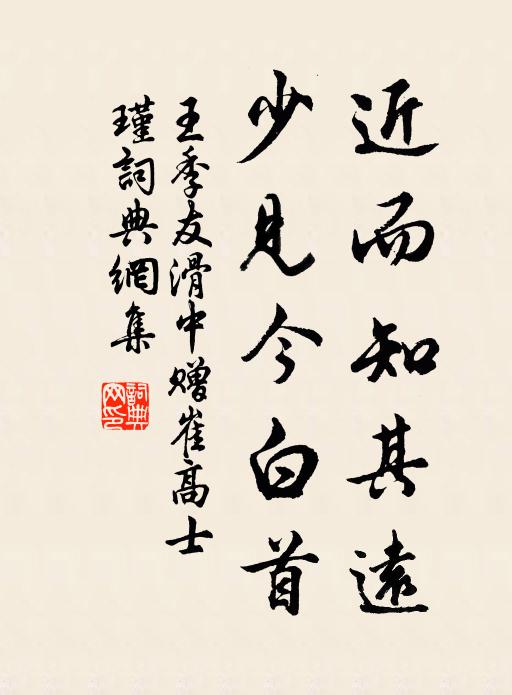 近而知其遠
少見今白首
王季友滑中贈崔高士
瑾詞典網集
詞典網印